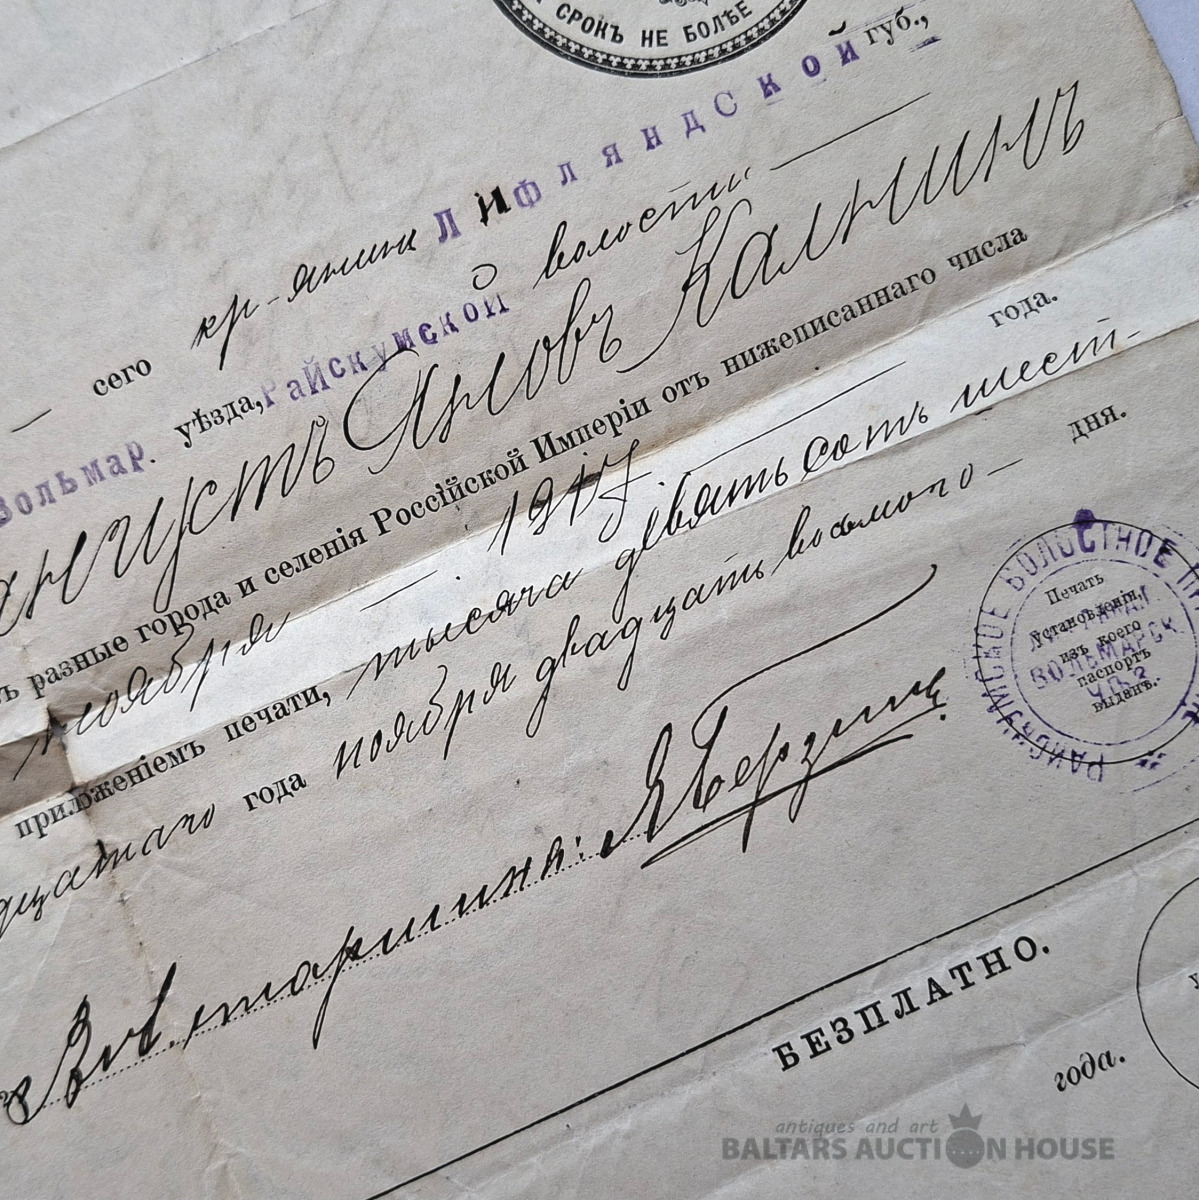 СРОКЪ НЕ БОЛѢЕ
сего кр-янинъ Лифляндской губ.,
Вольмар. уѣзда, Райскумской волости
Августъ Яковъ Калнинъ
разные города и селенія Россійской Имперіи отъ нижеписаннаго числа
ноября 1917 года.
приложеніемъ печати, тысяча девятьсотъ шест-
года ноября двадцать восьмого дня.
Вол. старшина: Я Берзинъ
Печать
установленія,
изъ коего
паспортъ
выданъ.
РАЙСКУМСКОЕ ВОЛОСТНОЕ
ВОЛЬМАРСК
БЕЗПЛАТНО.
года.
antiques and art
BALTARS AUCTION HOUSE